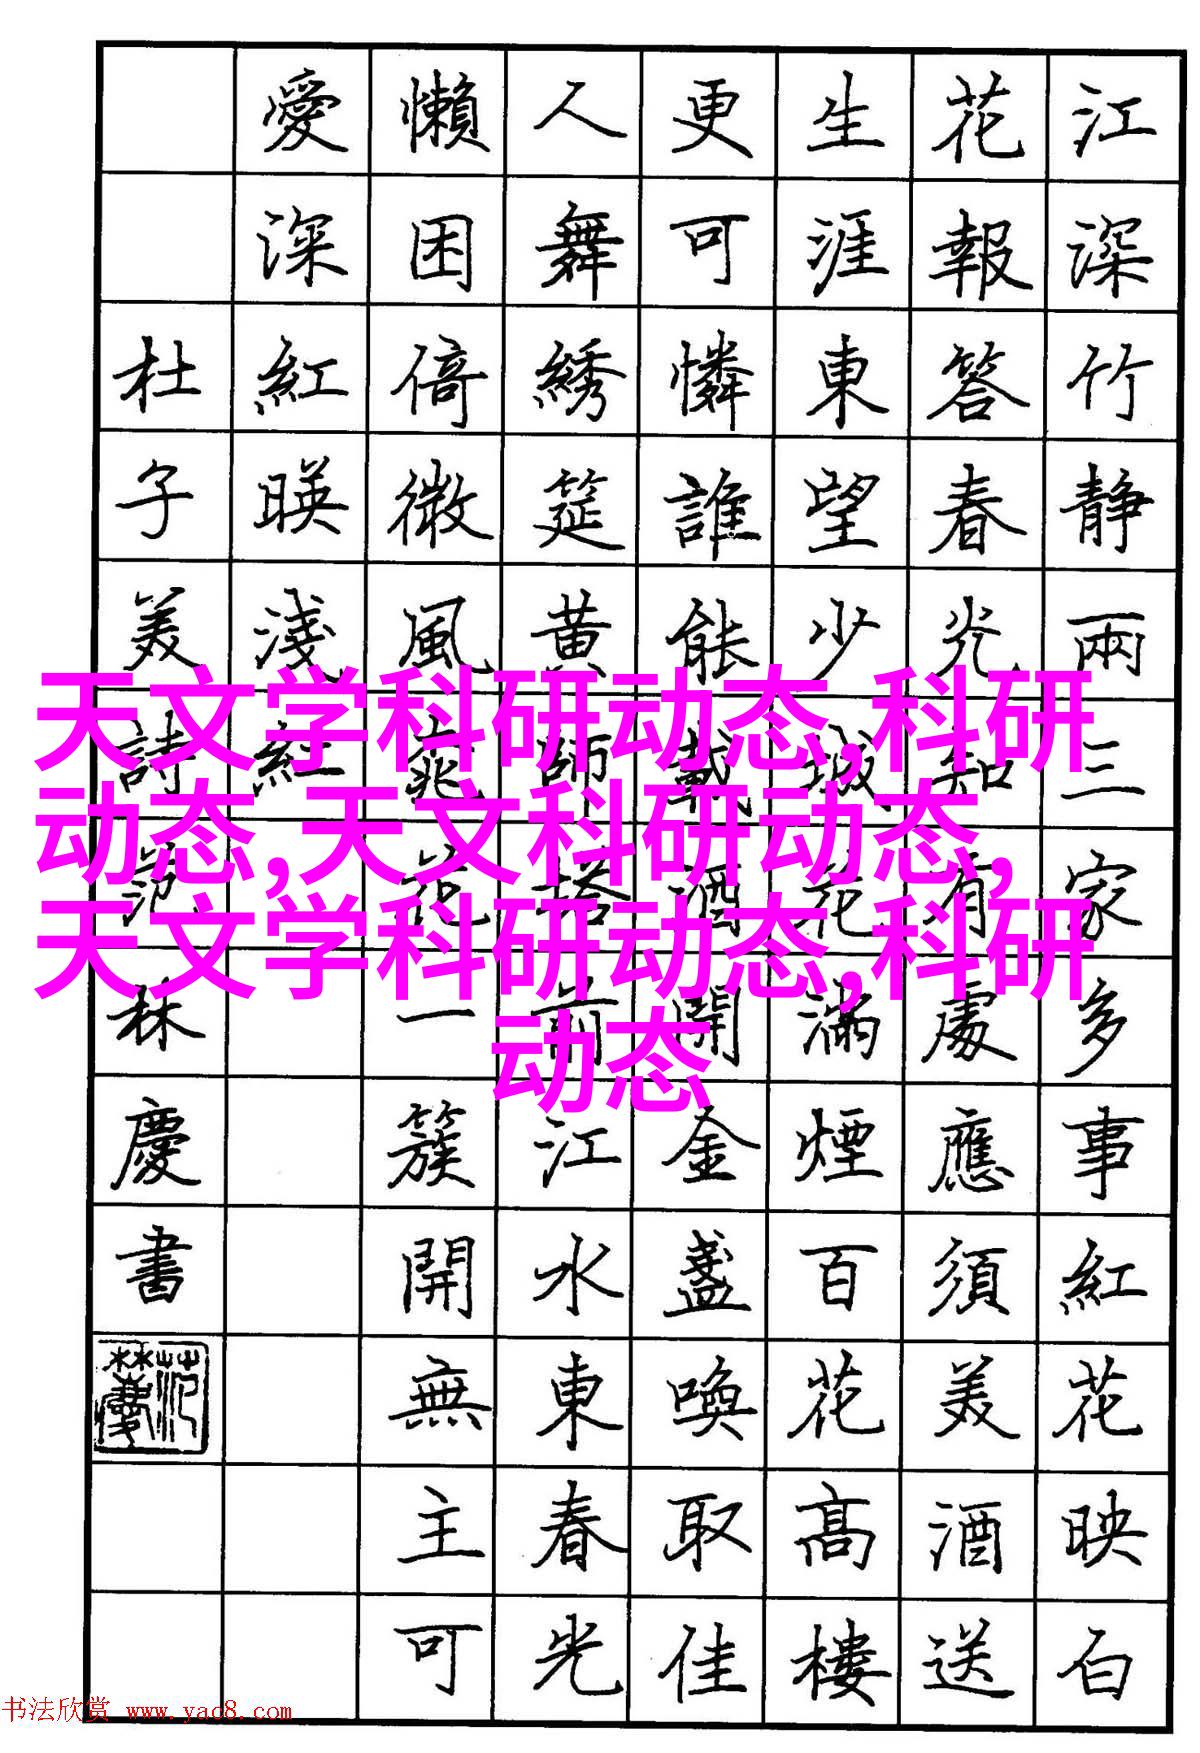 江深竹静兩三家多事紅花映白
花報答春光知有處應須美酒送
生涯東望少城花滿煙百花高樓
更可憐誰能載酒開金盞喚取佳
人舞綉筵黄師塔前江水東春光
懶困倚微風桃花一簇開無主可
愛深紅暎淺紅
杜子美詩范林慶書
范林慶
天文学科研动态,科研
动态,天文科研动态,
天文学科研动态,科研
动态
书法欣赏 www.yac8.com